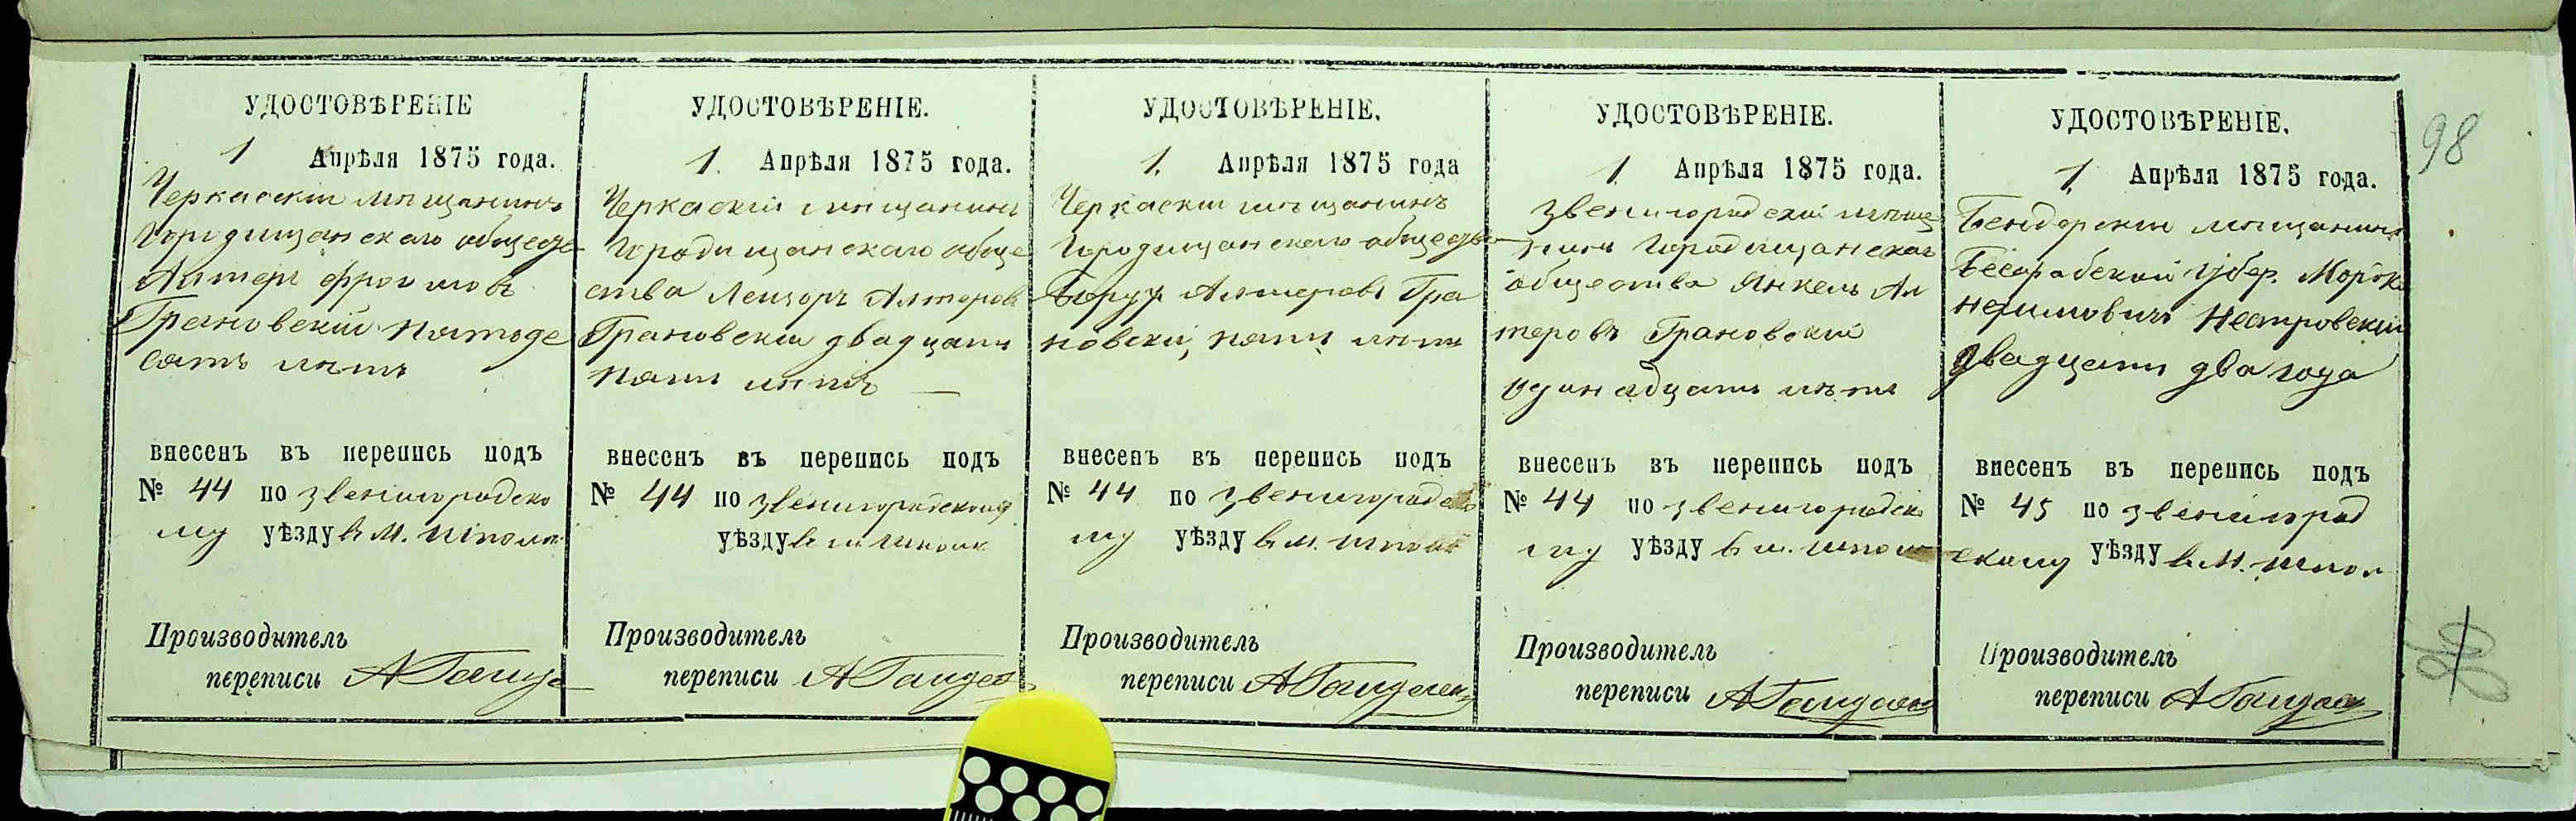 УДОСТОВѢРЕНІЕ
1 Апрѣля 1875 года.
Черкаскій мѣщанинъ
Городищанскаго общества
Алтеръ Фроимовъ
Грановскій пятьде
сятъ лѣтъ
внесенъ въ перепись подъ
№ 44 по Звенигородско
му уѣзду в м. Шполѣ
Производитель
переписи
УДОСТОВѢРЕНІЕ.
1. Апрѣля 1875 года.
Черкаскій мѣщанинъ
Городищанскаго обще
ства Лейзоръ Алтеровъ
Грановскій двадцать
пять лѣтъ
внесенъ въ перепись подъ
№ 44 по Звенигородскому
уѣзду в м Шполѣ
Производитель
переписи
УДОСТОВѢРЕНІЕ.
1. Апрѣля 1875 года
Черкаскій мѣщанинъ
Городищанскаго общества
Борух Алтеровъ Гра
новскій, пять лѣтъ
внесенъ въ перепись подъ
№ 44 по Звенигородско
му уѣзду в м. Шполѣ
Производитель
переписи
УДОСТОВѢРЕНІЕ.
1 Апрѣля 1875 года.
Звенигородскій мѣща
нинъ Городищанскаго
общества Янкель Ал
теровъ Грановскій
одинадцать лѣтъ
внесенъ въ перепись подъ
№ 44 по Звенигородско
му уѣзду в м. Шполѣ
Производитель
переписи
УДОСТОВѢРЕНІЕ.
1 Апрѣля 1875 года.
Бендерскій мѣщанинъ
Бесарабской Губер.
двадцать два года
внесенъ въ перепись подъ
№ 45 по Звенигород
скому уѣзду в М. Шполѣ
Производитель
переписи
98